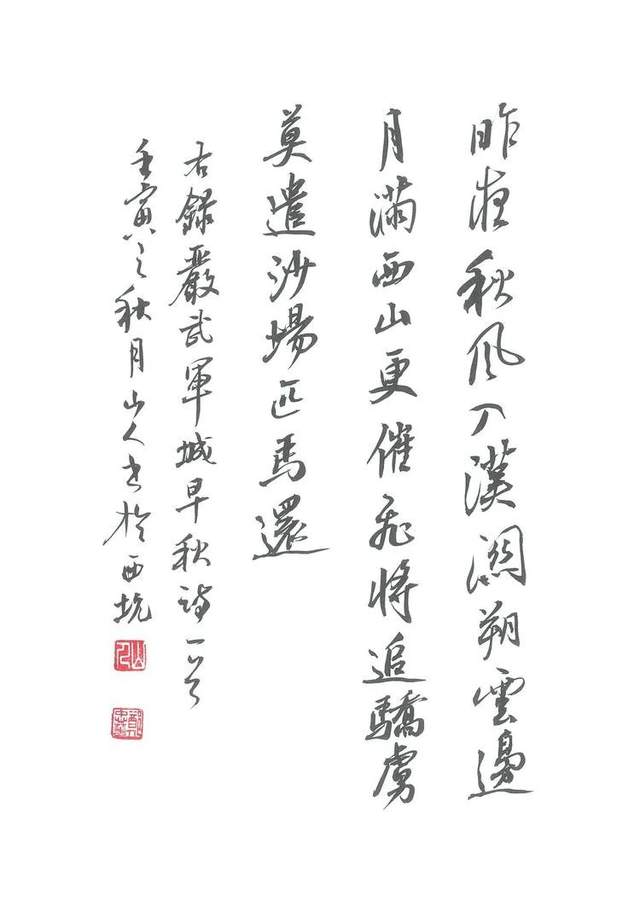 昨夜秋風入漢關朔雲邊
月滿西山更催飛將追驕虜
莫遣沙場匹馬還
右錄嚴武軍城早秋詩一首
壬寅之秋月山人书於西坑
山人